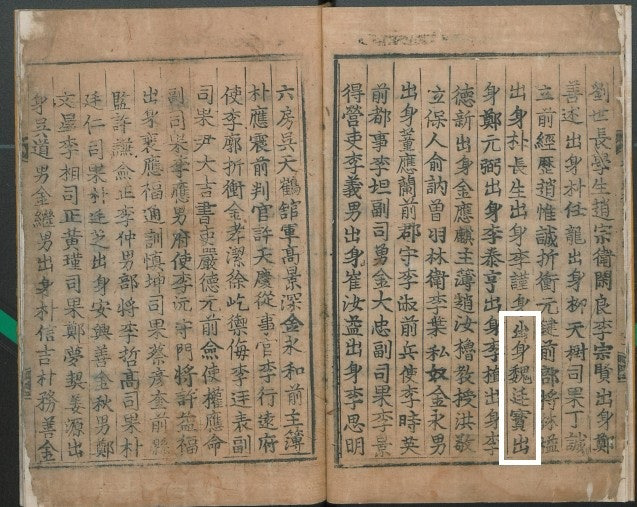 劉世長學生趙宗衛閑良李宗賢出身鄭
善述出身朴任龍出身柳天樹司果丁誠
立前經歷趙惟誠折衝元鍵前部將
出身朴長生出身李謹身出身魏廷寶出
身鄭元弼出身李泰亨出身李植出身李
德新出身金應麒主簿趙汝櫓教授洪敬
立保人俞訥曾羽林衛李葉私奴金永男
出身董應蘭前郡守李淑前兵使李時英
前都事李坦副司勇金大忠副司果李景
得營吏李義男出身崔汝益出身李思明
六房吳天鶴舘軍高景深金永和前主簿
朴應震前判官許天慶從事官李行遠府
使李廓折衝金孝潔徐屹禦侮李廷表副
司果尹大吉書吏嚴德元前僉使權應命
副司果李應男府使李沅守門將許益福
出身裵應福通訓慎坤司果蔡彦奎前縣
監許讌僉正李仲男部將李哲高司果朴
廷仁司果朴廷芝出身安興善金秋男鄭
文星李相司正黃瑾司果鄭夢契姜源出
身吳道男金繼男出身朴信吉朴務善金